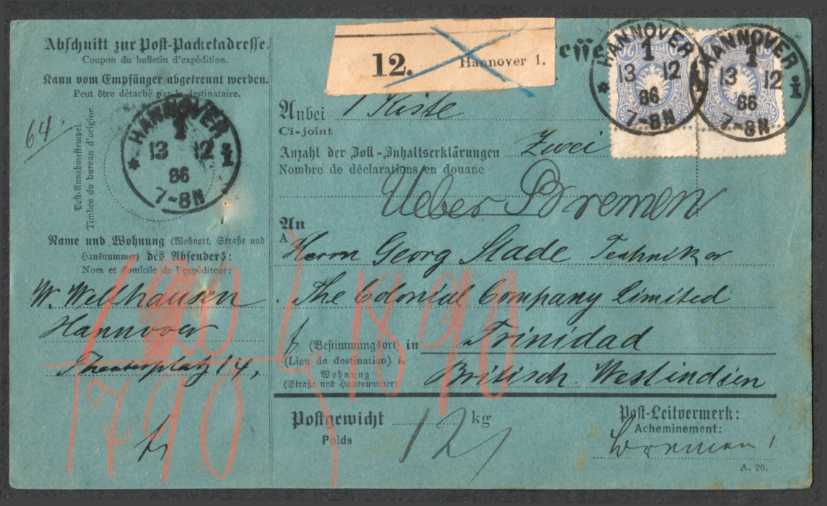 Abschnitt zur Post-Packetadresse.
Coupon du bulletin d'expédition.
Kann vom Empfänger abgetrennt werden.
Peut être détaché par le destinataire.
64
HANNOVER
1
13 12
86
7-8N
Timbre du bureau d'origine.
Name und Wohnung (Wohnort, Straße und
Hausnummer) des Absenders:
Nom et domicile de l'expéditeur:
Hannover
Theaterplatz 14,
12. Hannover 1.
HANNOVER
1
13 12
86
7-8N
HANNOVER
1
13 12
86
7-8N
Anbei 1 Kiste
Ci-joint
Anzahl der Zoll-Inhaltserklärungen Zwei
Nombre de déclarations en douane
Ueber Bremen
An
A
Herrn Georg Stade Techniker
The Colonial Company Limited
(Bestimmungsort) in Trinidad
(Lieu de destination) à
Wohnung Britisch Westindien
(Straße und Hausnummer)
Postgewicht 12 kg
Poids
Post-Leitvermerk:
Acheminement:
Bremen 1
A. 20.